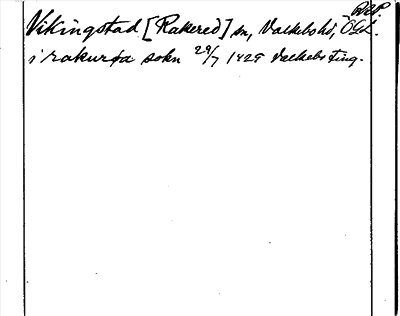 RAP.
Vikingstad [Rakered] sn, Valkebo hd, ÖGL.
i rakurþa sokn 29/7 1429 Valkebo ting.